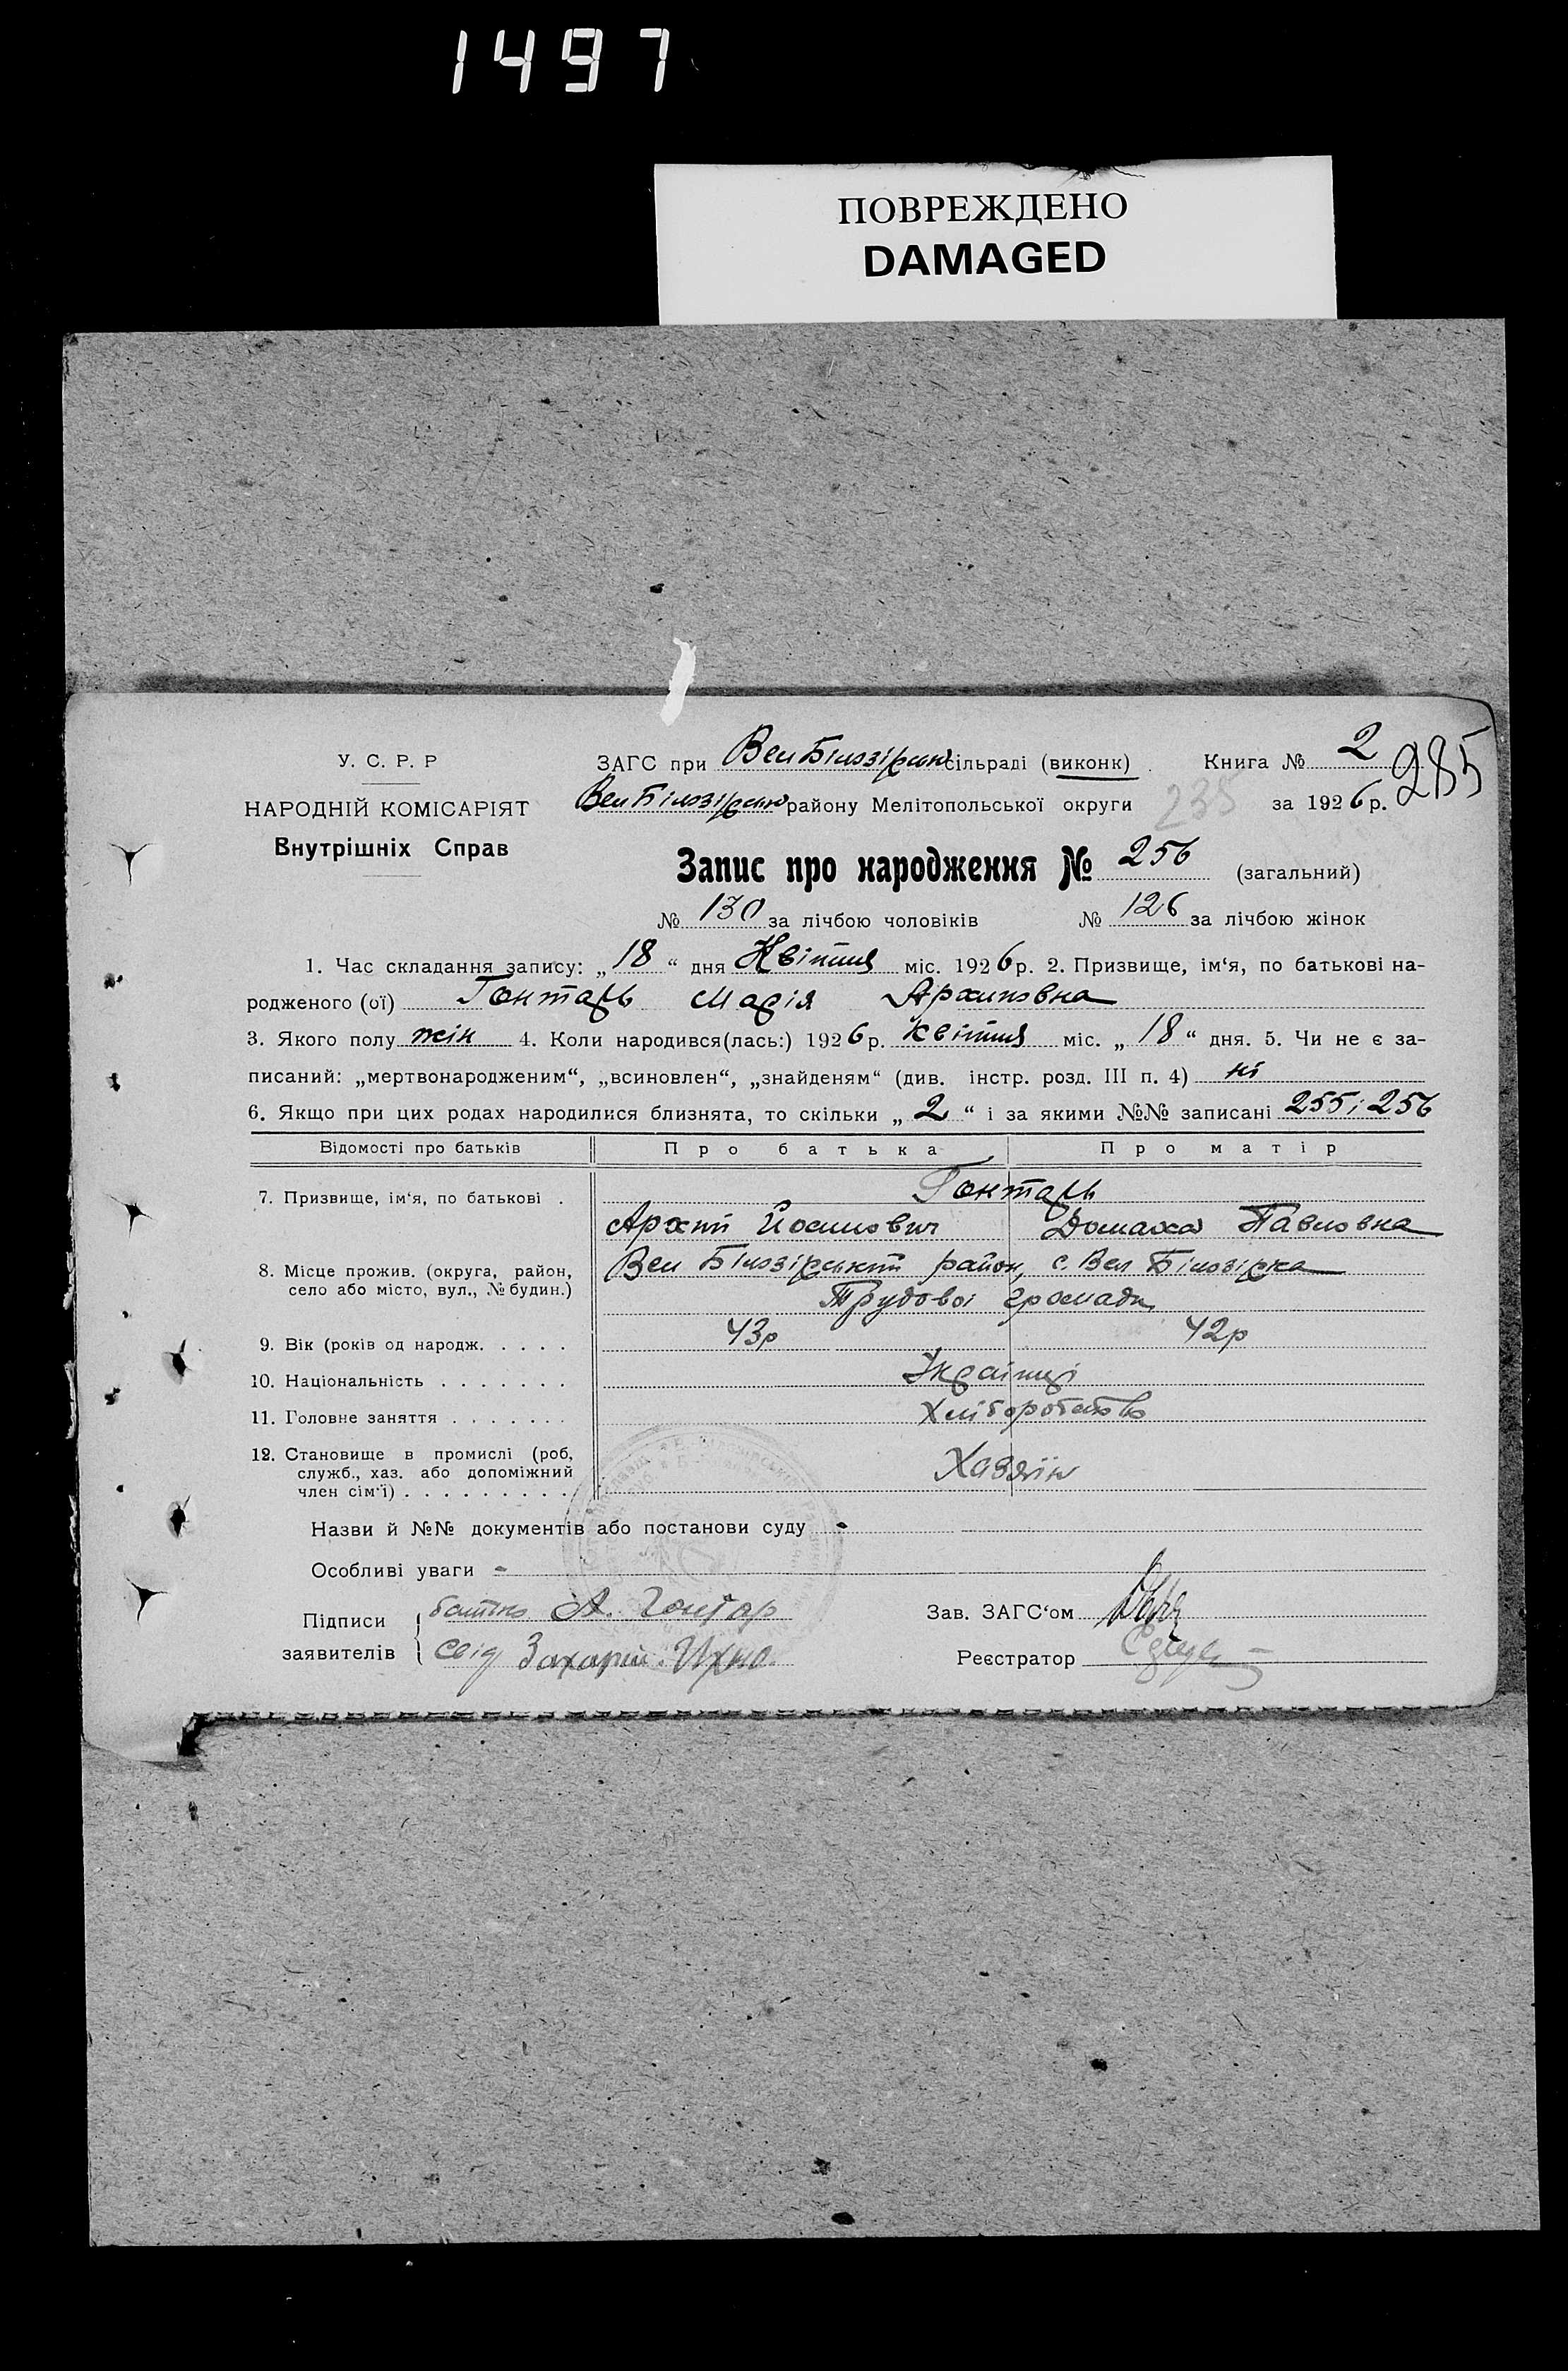 1497
ПОВРЕЖДЕНО
DAMAGED
У. С. Р. Р
НАРОДНІЙ КОМІСАРІЯТ
Внутрішніх Справ
ЗАГС при Вел Білозірськ сільраді (виконк) . Книга № 2
285
Вел Білозірськ району Мелітопольської округи 235 за 1926 р.
Запис про народження № 256 (загальний)
№ 130 за лічбою чоловіків № 126 за лічбою жінок
1. Час складання запису: „18“ дня Квітня міс. 1926 р. 2. Призвище, ім‘я, по батькові на-
родженого (ої) Гонтарь Марія Архиповна
3. Якого полу жін 4. Коли народився(лась:) 1926 р. квітня міс. „18“ дня. 5. Чи не є за-
писаний: „мертвонародженим“, „всиновлен“, „знайденям“ (див. інстр. розд. III п. 4) ні
6. Якщо при цих родах народилися близнята, то скільки „2“ і за якими №№ записані 255 і 256
Відомості про батьків Про батька Про матір
7. Призвище, ім‘я, по батькові . Гонтарь
Архип Йосипович Домаха Павловна
8. Місце прожив. (округа, район, село або місто, вул., № будин.) Вел Білозірський район, с. Вел Білозірка
Трудової громади
9. Вік (років од народж. . . . . 43р 42р
10. Національність . . . . . . . Українці
11. Головне заняття . . . . . . . Хліборобство
12. Становище в промислі (роб,
служб., хаз. або допоміжний
член сім‘ї) . . . . . . . . . Хазяїн
Назви й №№ документів або постанови суду -
Особливі уваги -
Підписи заявителів { батько А. Гонтар
свід Захарій
Зав. ЗАГС‘ом
Реєстратор